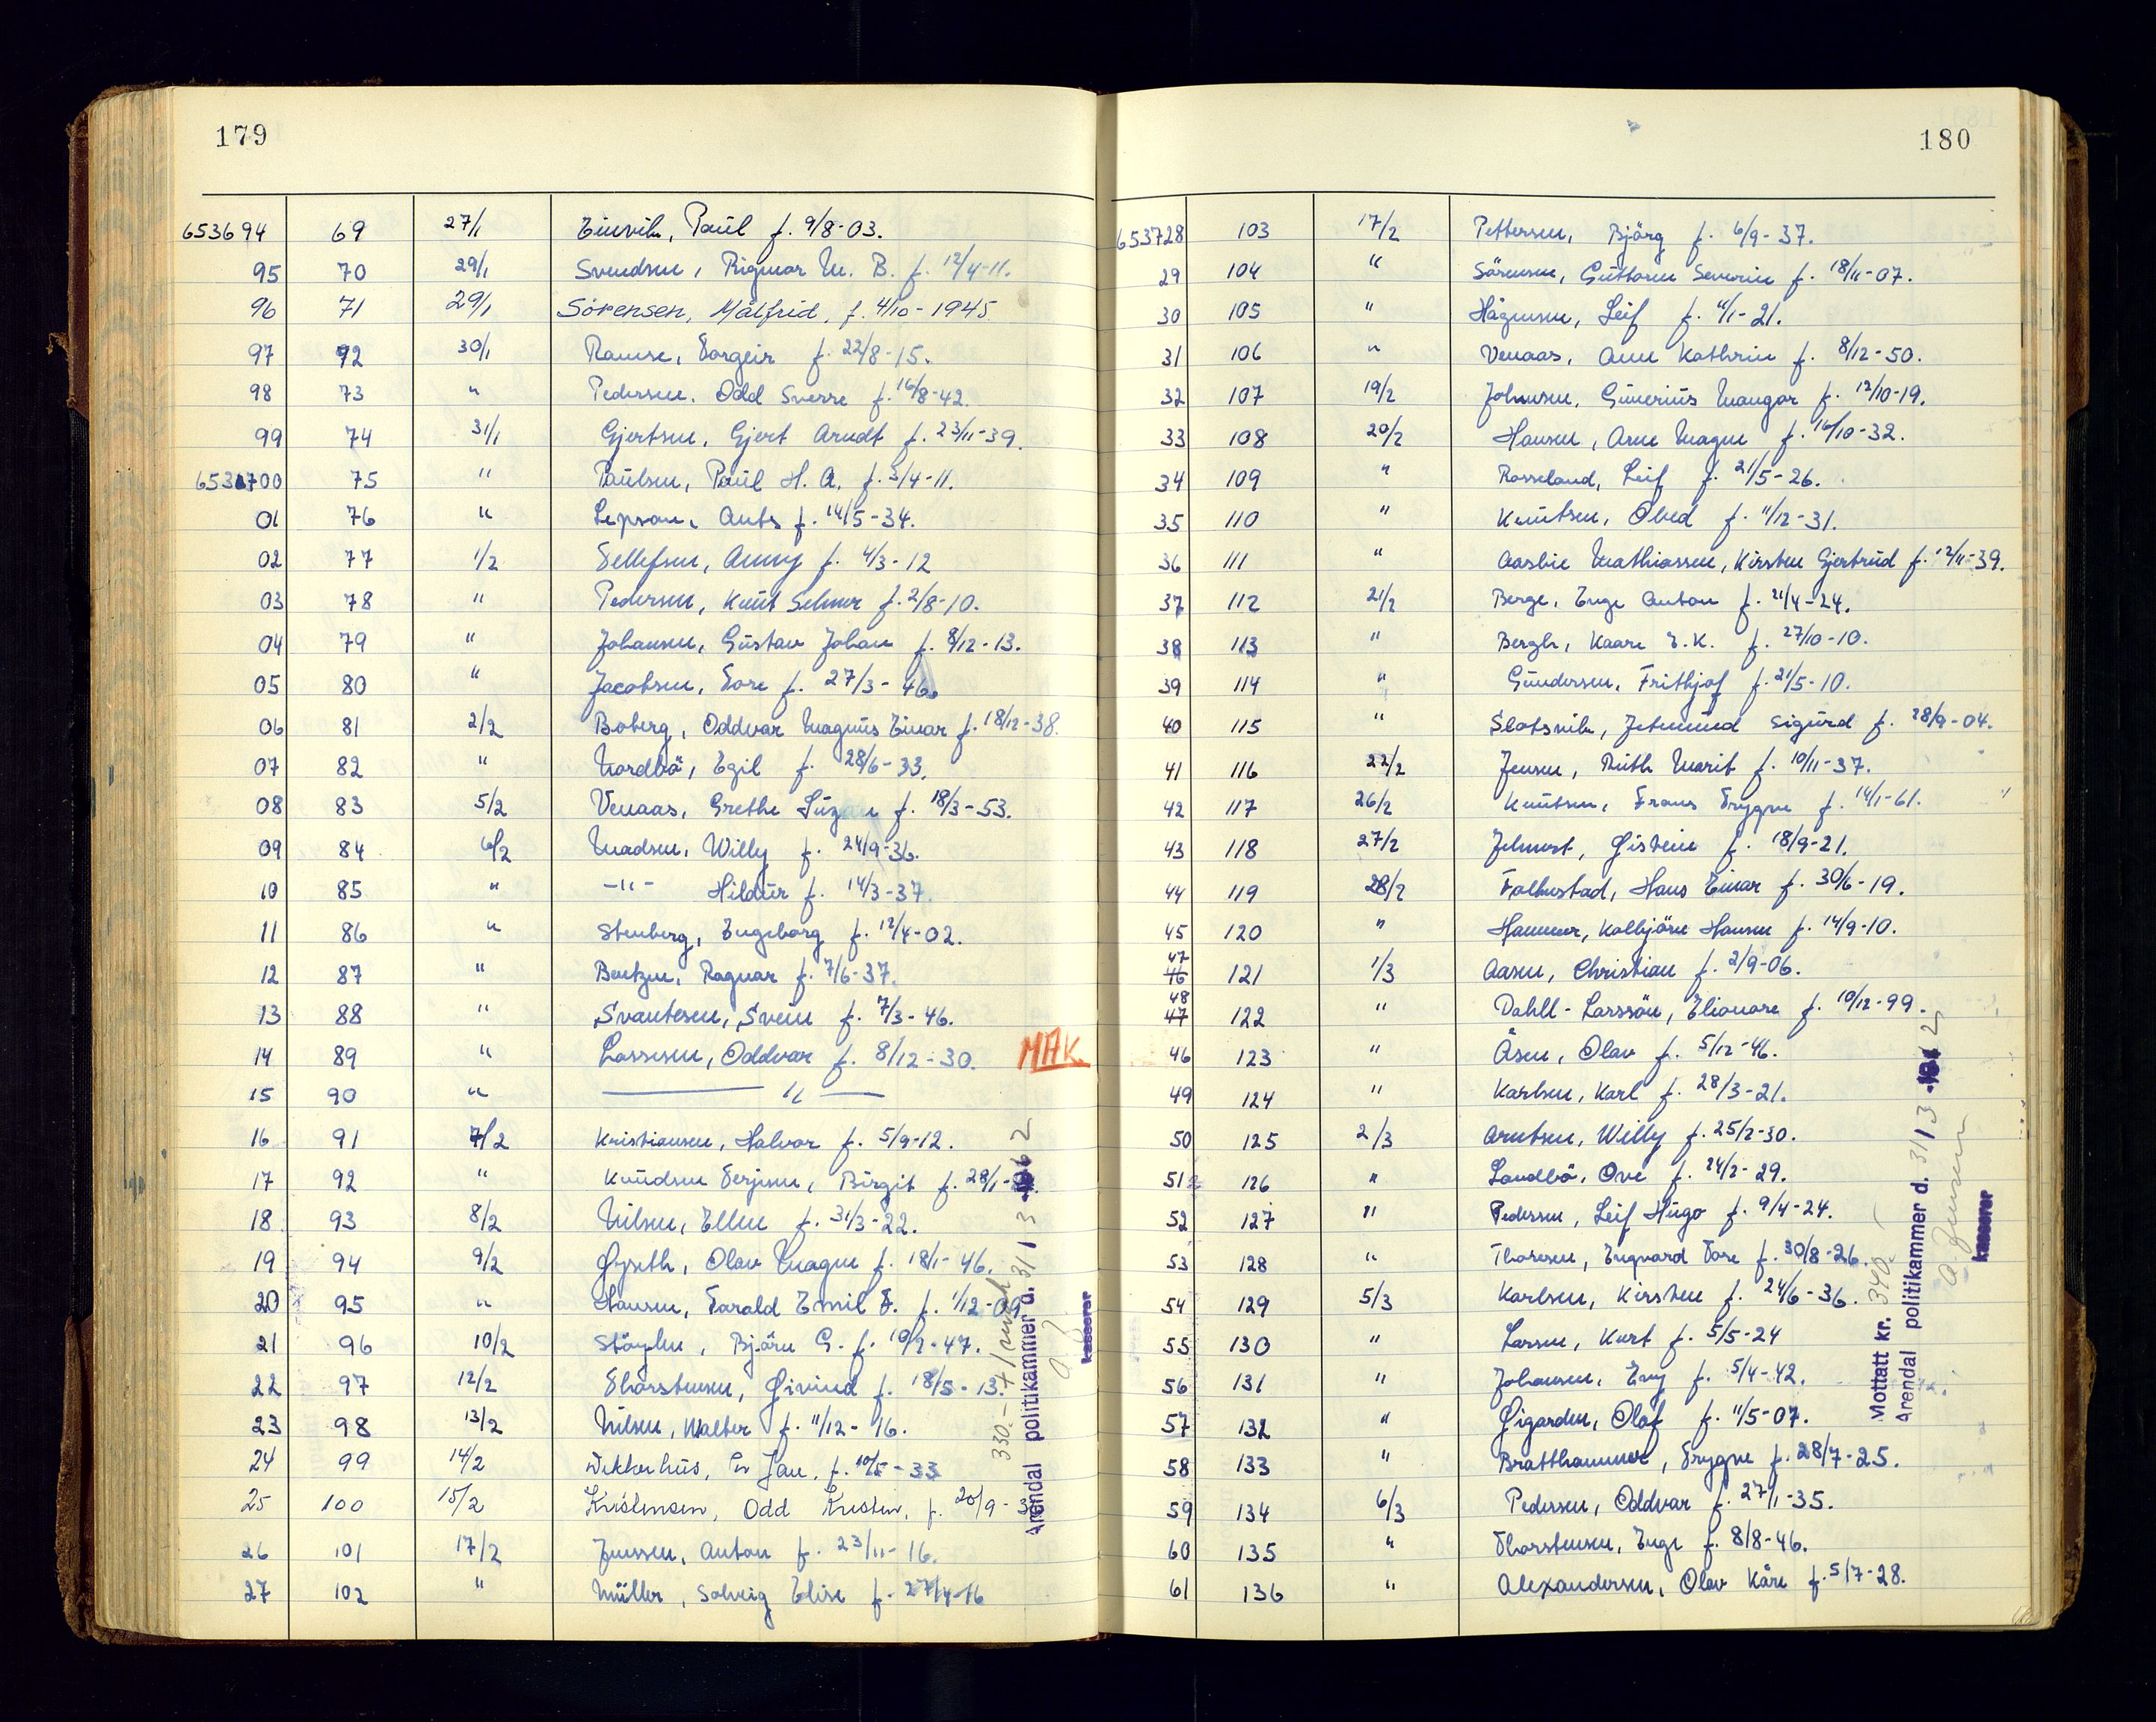 179
653694 69 27/1 Einvik, Paul f. 9/8-03.
95 70 29/1 Svendsen, Rigmor M. B. f. 12/4-11.
96 71 29/1 Sörensen, Målfrid, f. 4/10-1945
97 72 30/1 Ramse, Torgeir f. 22/8-15.
98 73 " Pedersen, Odd Sverre f. 16/8-42.
99 74 31/1 Gjertsen, Gjert Arndt f. 23/11-39.
653700 75 " Paulsen, Paul H. A. f. 3/4-11.
01 76 " Lepson, Ants f. 14/5-34.
02 77 1/2 Tellefsen, Anny f. 4/3-12
03 78 " Pedersen, Knut Selmer f. 2/8-10.
04 79 " Johansen, Gustav Johan f. 8/12-13.
05 80 " Jacobsen, Tore f. 27/3-46.
06 81 2/2 Boberg, Oddvar Magnus Einar f. 18/12-38.
07 82 " Nordbö, Egil f. 28/6-33.
08 83 5/2 Venaas, Grethe f. 18/3-53.
09 84 6/2 Madsen, Willy f. 24/9-36.
10 85 " -"- Hildur f. 14/3-37.
11 86 " Stenberg, Ingeborg f. 12/4-02.
12 87 " Bentzen, Ragnar f. 7/6-37.
13 88 " Svantesen, Svein f. 7/3-46.
14 89 " Lassesen, Oddvar f. 8/12-30. MAK
15 90 " — " —
16 91 7/2 Kristiansen, Halvor f. 5/9-12.
17 92 " Knudsen Terjesen, Birgit f. 28/1-
18 93 8/2 Nilsen, Ellen f. 31/3-22.
19 94 9/2 Øyseth, Olav Magne f. 18/1-46.
20 95 " Hansen, Harald Emil F. f. 1/12-09
21 96 10/2 Stöylen, Björn G. f. 10/2-47.
22 97 12/2 Thorstensen, Øivind f. 18/5-13.
23 98 13/2 Nilsen, Walter f. 11/12-16.
24 99 14/2 Wekkerhus, Per Jan. f. 10/5-33
25 100 15/2 Kristensen, Odd Kristen, f. 20/9-
26 101 17/2 Jenssen, Anton f. 23/11-16.
27 102 " Müller, Solveig Elise f. 27/4-16
330.-
Arendal politikammer d. 31/3 62
kasserer
180
653728 103 17/2 Pettersen, Björg f. 6/9-37.
29 104 " Sörensen, Guttorm Severin f. 18/11-07.
30 105 " Hågensen, Leif f. 11/1-21.
31 106 " Venaas, Ann Kathrin f. 8/12-50.
32 107 19/2 Johnsen, Gunerius Mangor f. 12/10-19.
33 108 20/2 Hansen, Arne Magne f. 16/10-32.
34 109 " Rosseland, Leif f. 21/5-26.
35 110 " Knutsen, Obed f. 11/12-31.
36 111 " Aasbie Mathiassen, Kirsten Gjertrud f. 12/11-39.
37 112 21/2 Berge, Inge Anton f. 21/4-24.
38 113 " Bergh, Kaare E. K. f. 27/10-10.
39 114 " Gundersen, Frithjof f. 21/5-10.
40 115 " Slotsvik, Jetmund Sigurd f. 28/9-04.
41 116 22/2 Jensen, Ruth Marit f. 10/11-37.
42 117 26/2 Knutsen, Frans Trygve f. 14/1-61.
43 118 27/2 Jelmert, Øistein f. 18/9-21.
44 119 28/2 Falkestad, Hans Einar f. 30/6-19.
45 120 " Hammer, Kolbjörn Hansen f. 14/9-10.
47 46 121 1/3 Aasen, Christian f. 2/9-06.
48 47 122 " Dahll-Larssön, Elionore f. 10/12-99.
46 123 " Åsen, Olav f. 5/12-46.
49 124 " Karlsen, Karl f. 28/3-21.
50 125 2/3 Arntsen, Willy f. 25/2-30.
51 126 " Landbö, Ove f. 24/2-29.
52 127 " Pedersen, Leif Hugo f. 9/4-24.
53 128 " Thoresen, Ingvard Tore f. 30/8-26.
54 129 5/3 Karlsen, Kirsten f. 24/6-36.
55 130 " Larsen, Kurt f. 5/5-24
56 131 " Johansen, Eny f. 5/4-42.
57 132 " Øigarden, Olaf f. 11/5-07.
58 133 " Bratthammer, Trygve f. 28/7-25.
59 134 6/3 Pedersen, Oddvar f. 27/1-35.
60 135 " Thorstensen, Inge f. 8/8-46.
61 136 " Alexandersen, Olav Kåre f. 5/7-28.
Mottatt kr. 340.-
Arendal politikammer d. 31/3 62
A. Jensen
kasserer